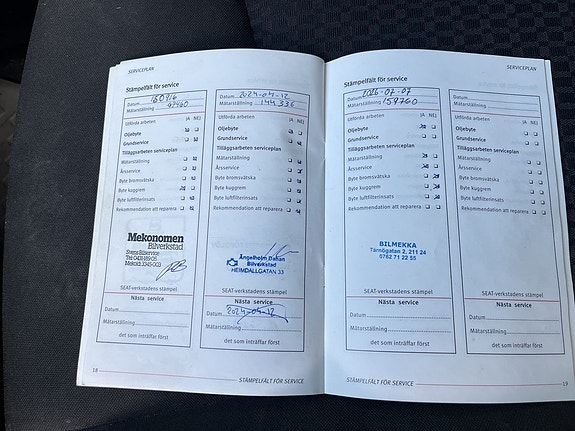 SERVICEPLAN
Stämpelfält för service
Datum
Mätarställning 97460
Utförda arbeten JA NEJ
Oljebyte
Grundservice
Tilläggsarbeten serviceplan
Mätarställning
Årsservice
Byte bromsvätska
Byte kuggrem
Byte luftfilterinsats
Rekommendation att reparera
Mekonomen
Bilverkstad
SEAT-verkstadens stämpel
Nästa service
Datum
Mätarställning
det som inträffar först
18
Datum 2024-04-12
Mätarställning 144 336
Utförda arbeten JA NEJ
Oljebyte
Grundservice
Tilläggsarbeten serviceplan
Mätarställning
Årsservice
Byte bromsvätska
Byte kuggrem
Byte luftfilterinsats
Rekommendation att reparera
Bilverkstad
HEIMDALLGATAN 33
SEAT-verkstadens stämpel
Nästa service
Datum 2024-04-12
Mätarställning
det som inträffar först
STÄMPELFÄLT FÖR SERVICE
SERVICEPLAN
Stämpelfält för service
Datum 2026-07-07
Mätarställning 159760
Utförda arbeten JA NEJ
Oljebyte
Grundservice
Tilläggsarbeten serviceplan
Mätarställning
Årsservice
Byte bromsvätska
Byte kuggrem
Byte luftfilterinsats
Rekommendation att reparera
BILMEKKA
Tärnögatan 2, 211 24
0762 71 22 55
SEAT-verkstadens stämpel
Nästa service
Datum
Mätarställning
det som inträffar först
STÄMPELFÄLT FÖR SERVICE
Datum
Mätarställning
Utförda arbeten JA NEJ
Oljebyte
Grundservice
Tilläggsarbeten serviceplan
Mätarställning
Årsservice
Byte bromsvätska
Byte kuggrem
Byte luftfilterinsats
Rekommendation att reparera
SEAT-verkstadens stämpel
Nästa service
Datum
Mätarställning
det som inträffar först
19